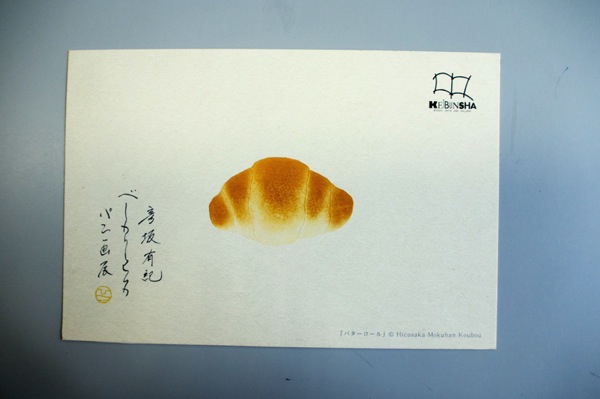 KEIBUNSHA
彦坂有紀
パン画展
「バターロール」© Hicosaka Mokuhan Koubou